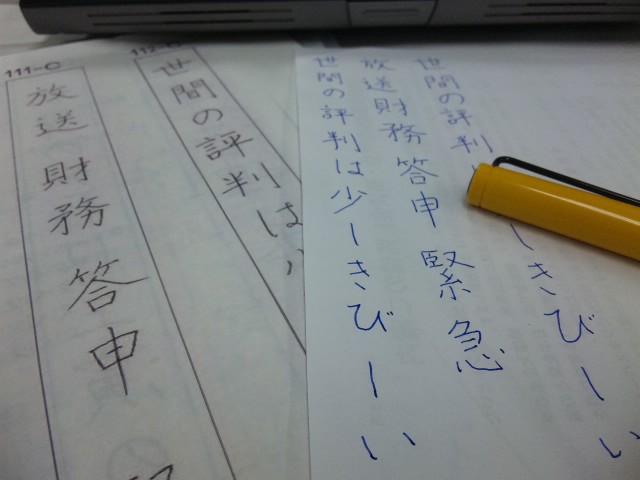 世間の評判しきびしい
放送財務答申緊急
世間の評判は少しきびしい
112-
世間の評判は
111-C
放送財務答申